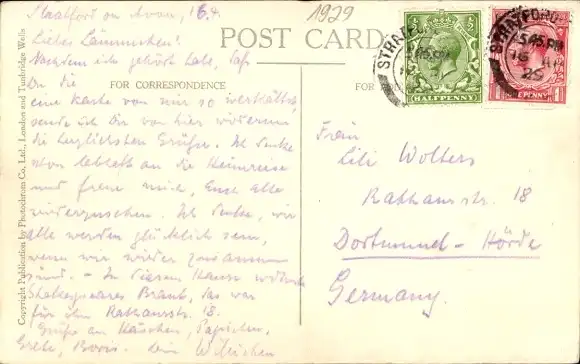 Stratford on Avon, 16.4.
1929
POST CARD
Liebes Lämmchen!
Nachdem ich gehört habe, daß
Du die
FOR CORRESPONDENCE
FOR
eine Karte von mir so
sende ich Dir von hier wiederum
die herzlichsten Grüße. Ich denke
schon lebhaft an die Heimreise
und freue mich, Euch alle
wiederzusehen. Ich denke, wir
alle werden glücklich sein,
wenn wir wieder zusammen
sind. - In diesem Hause wohnte
Shakespeares Braut, das war
für ihn Rathausstr. 18.
Grüße an Häschen, Papichen,
Grete, Boris. Dein Willichen
Copyright Publication by Photochrom Co., Ltd., London and Tunbridge Wells
STRATFORD
HALFPENNY
STRATFORD
5.45 PM
16 AP
25
ONE PENNY
Frau
Lili Wolters
Rathausstr. 18
Dortmund - Hörde
Germany.